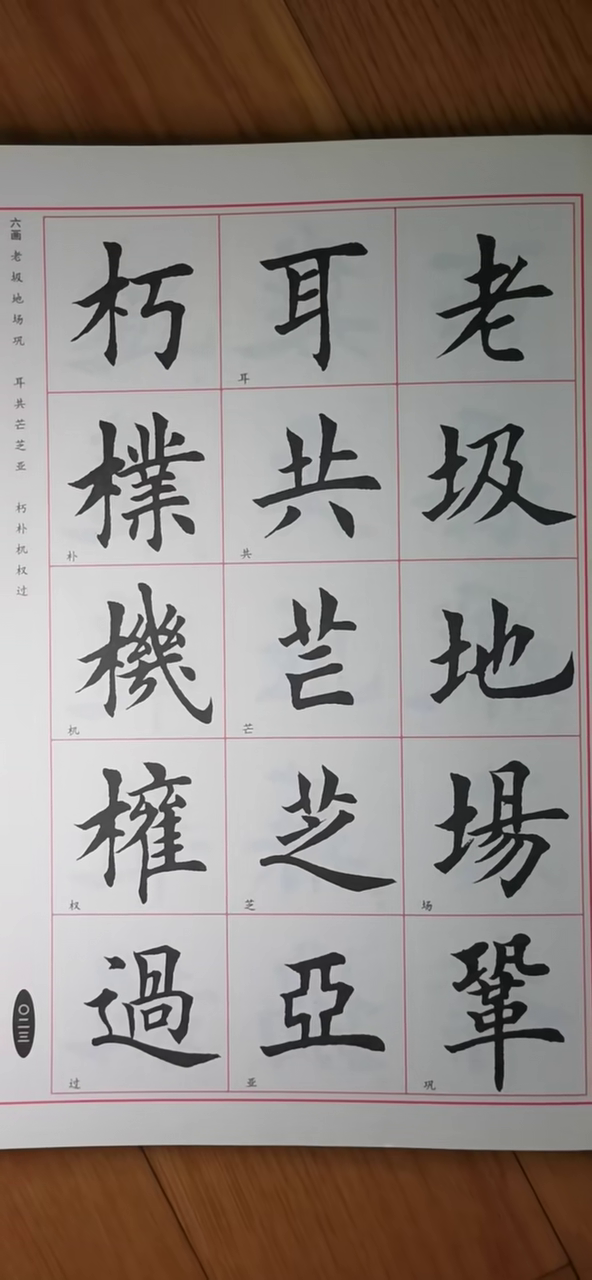 老圾地場巩
耳共芒芝亞
朽樸機權過
场
巩
耳
共
芒
芝
亚
朴
机
权
过
六画 老圾地场巩 耳共芒芝亚 朽朴机权过
〇二三